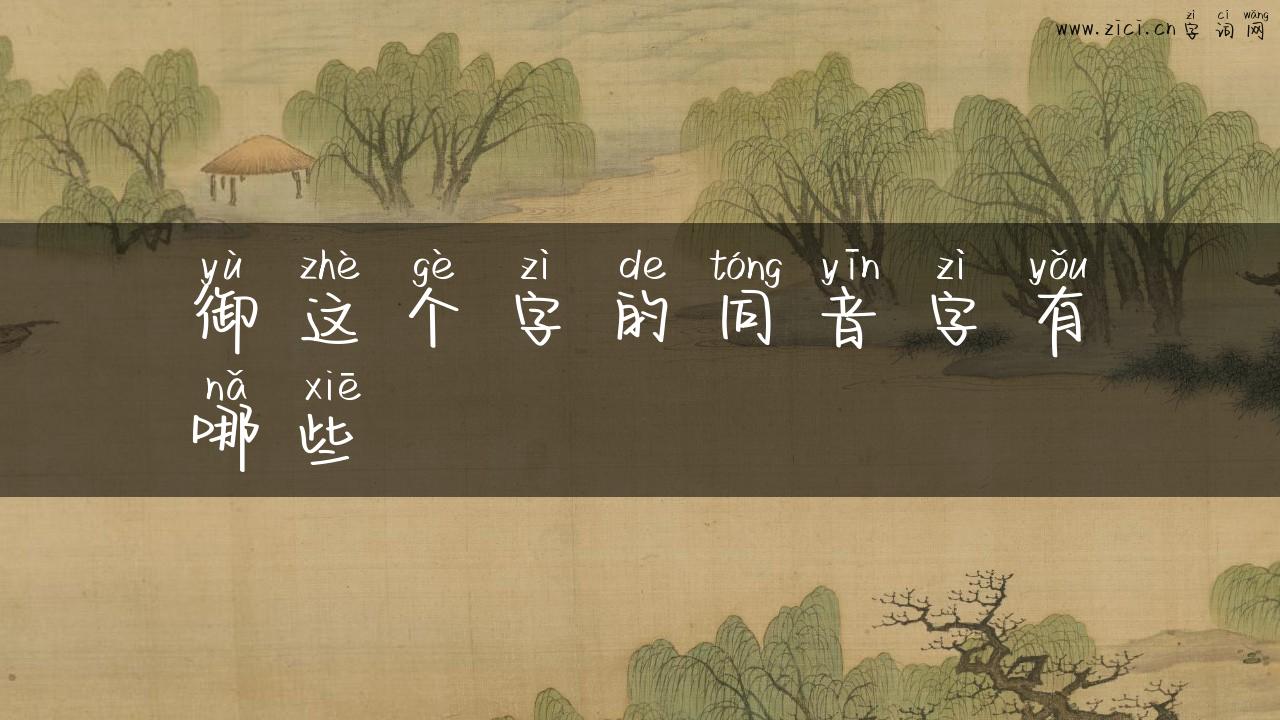 zì cí wǎng
www.zici.cn 字词网
yù zhè gè zì de tóng yīn zì yǒu
御这个字的同音字有
nǎ xiē
哪些